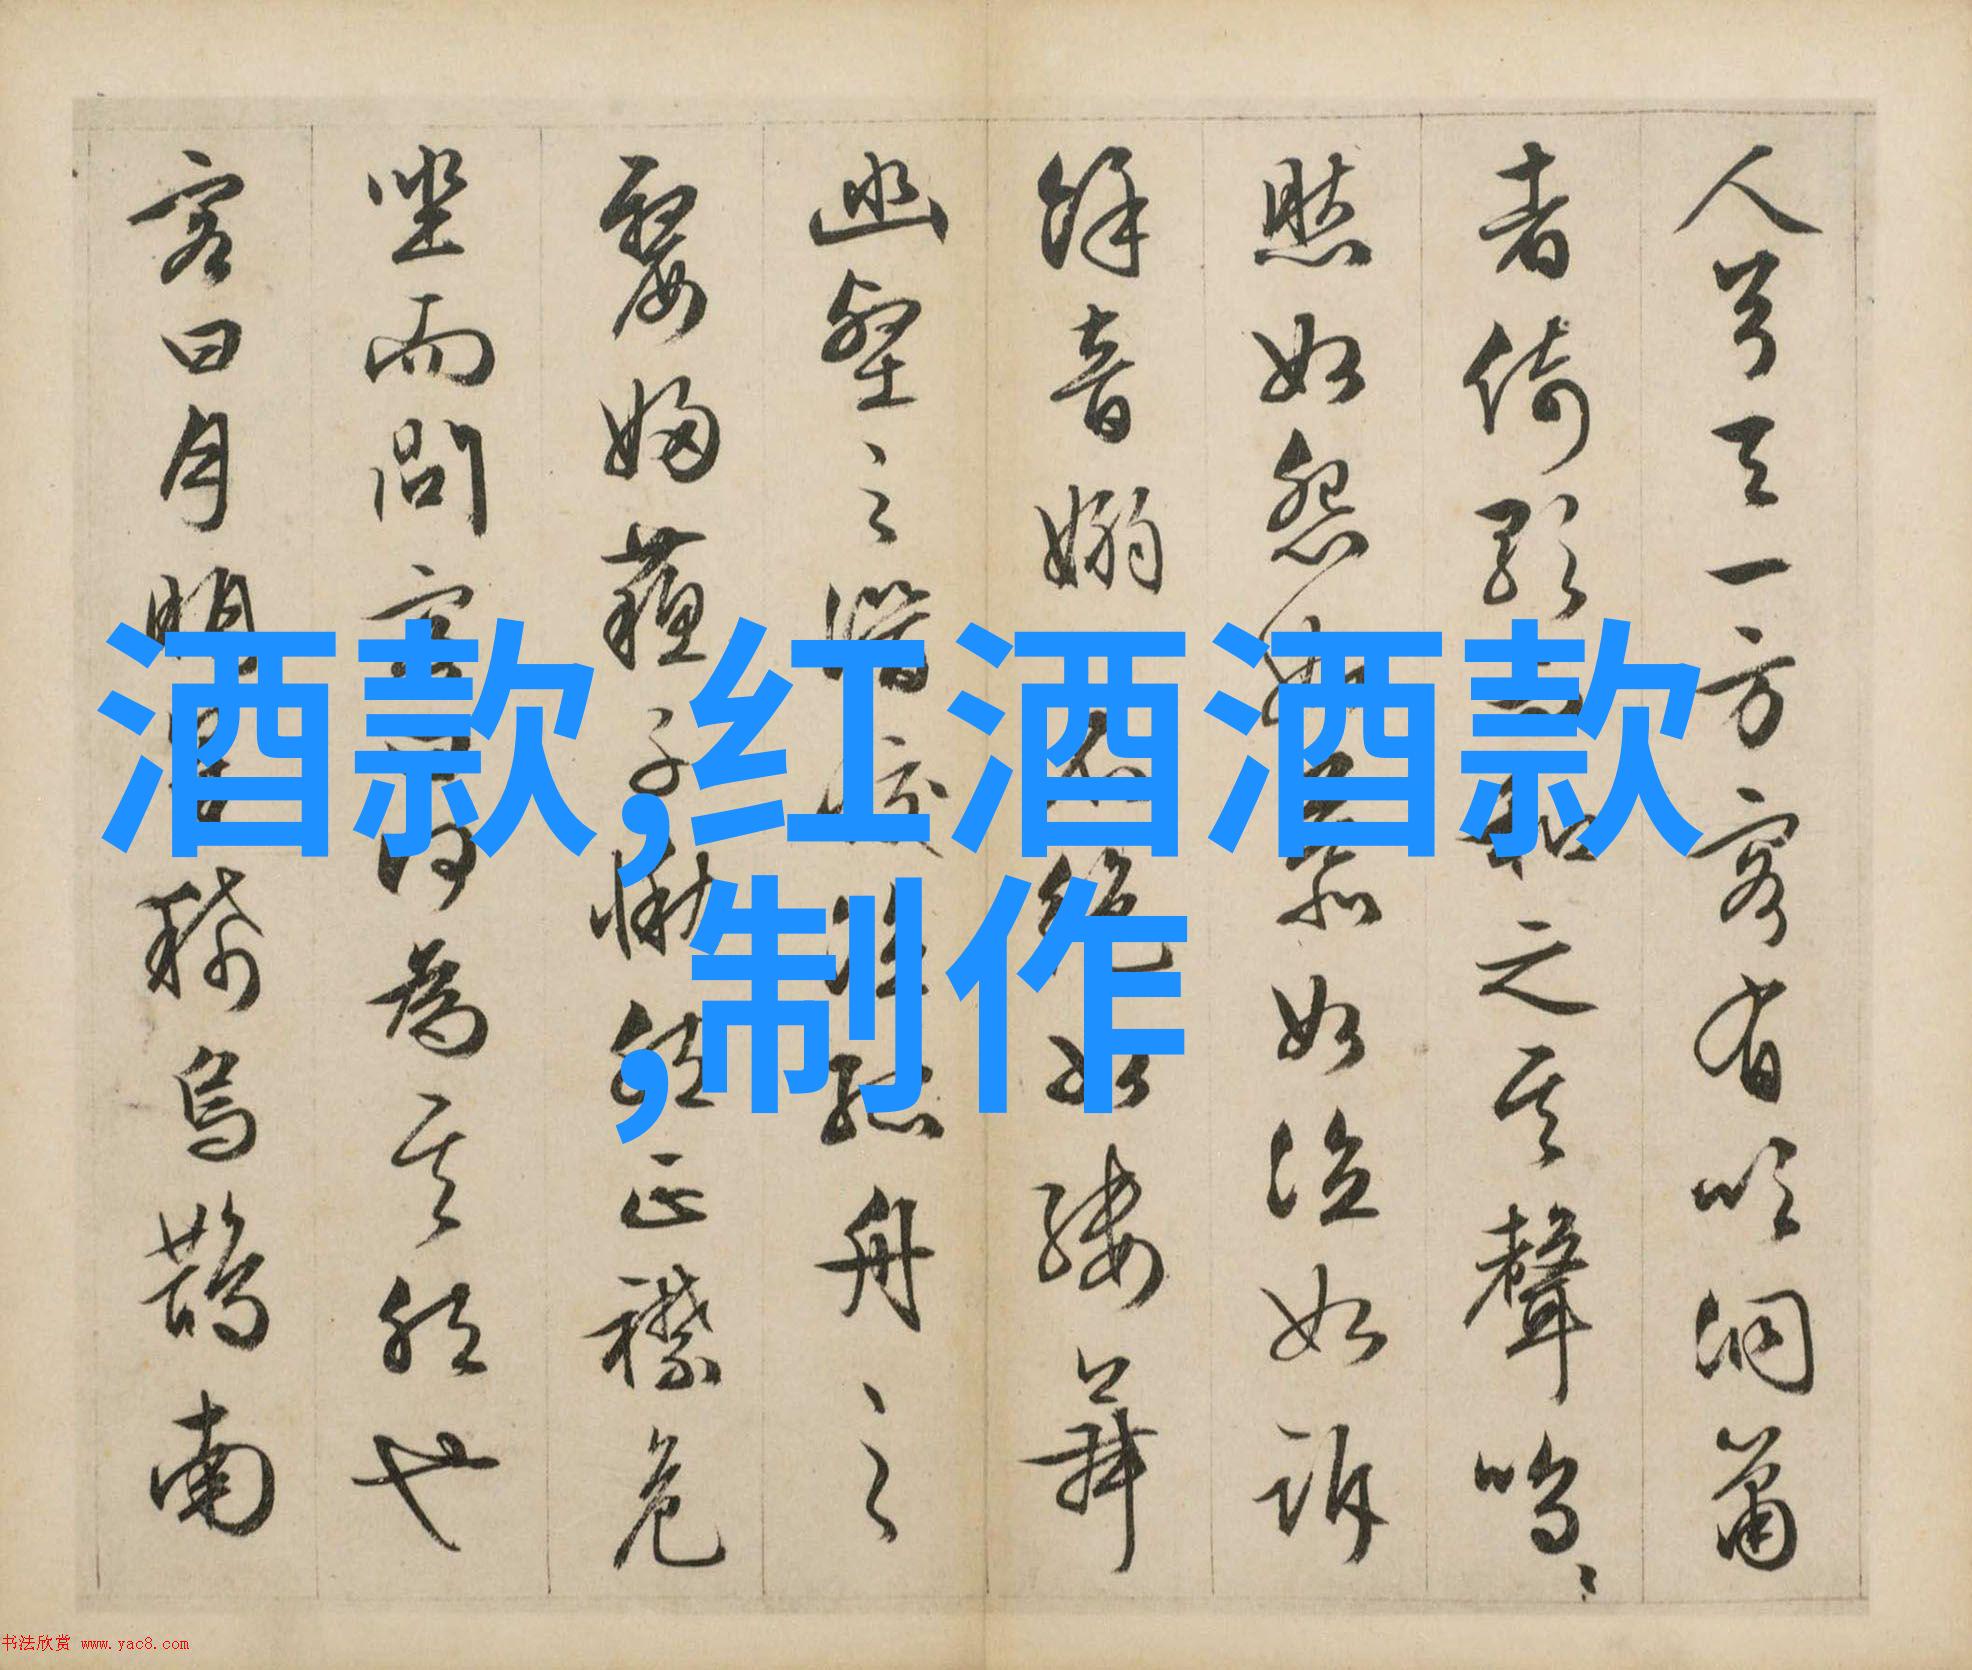 人兮天一方客有吹洞簫
者倚歌而和之其聲嗚〻
然如怨如慕如泣如訴
餘音嫋〻不絕如縷舞
幽壑之潛蛟泣孤舟之
嫠婦蘇子愀然正襟危
坐而問客曰何為其然也
客曰月明星稀烏鵲南
酒款,红酒酒款
,制作
书法欣赏 www.yac8.com